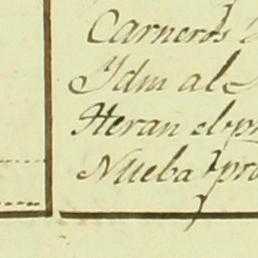 Carneros
Ydm al
Heran el pr
Nueba pro